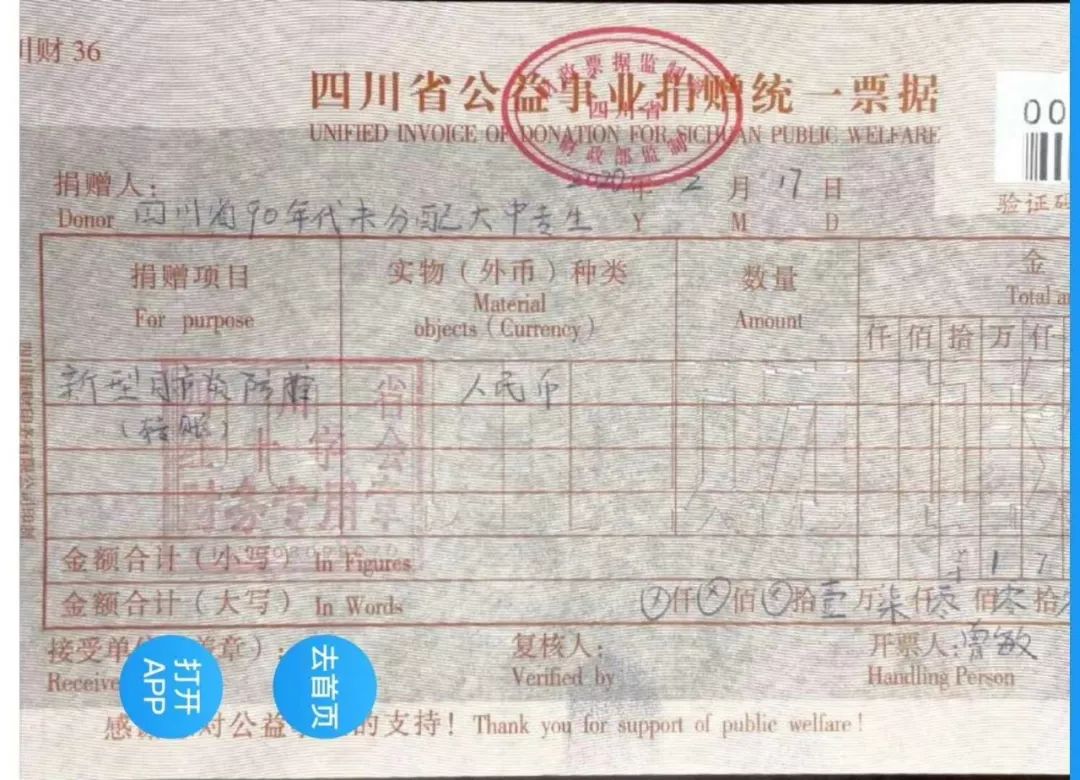 川财 36
四川省公益事业捐赠统一票据
UNIFIED INVOICE OF DONATION FOR SICHUAN PUBLIC WELFARE
财政票据监制章
四川省
财政部监制
00
验证码
捐赠人：
Donor 四川省90年代未分配大中专生
2020年 2 月 17 日
Y M D
捐赠项目
For purpose
实物（外币）种类
Material
objects（Currency）
数量
Amount
金
Total
仟 佰 拾 万 仟
新型 防
人民币
（转账）
四川省
红十字会
财务专用章
金额合计（小写）In Figures
1 7
金额合计（大写）In Words
仟 佰 拾壹万柒仟零佰零拾
接受单位（盖章）：
Receive
复核人：
Verified by
开票人：曾敏
Handling Person
感 对公益 的支持！Thank you for support of public welfare！
打开
APP
去首页